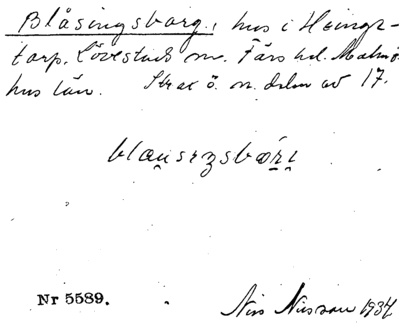 Blåsingsborg, hus i Heings-
tarp. Lövestads sn. Färs hd. Malmö-
hus län. Strax ö. n. delen av 17.
blau̯sɪŋsbɔ́rɪ
Nr 5589.
Nils Nilsson 1934